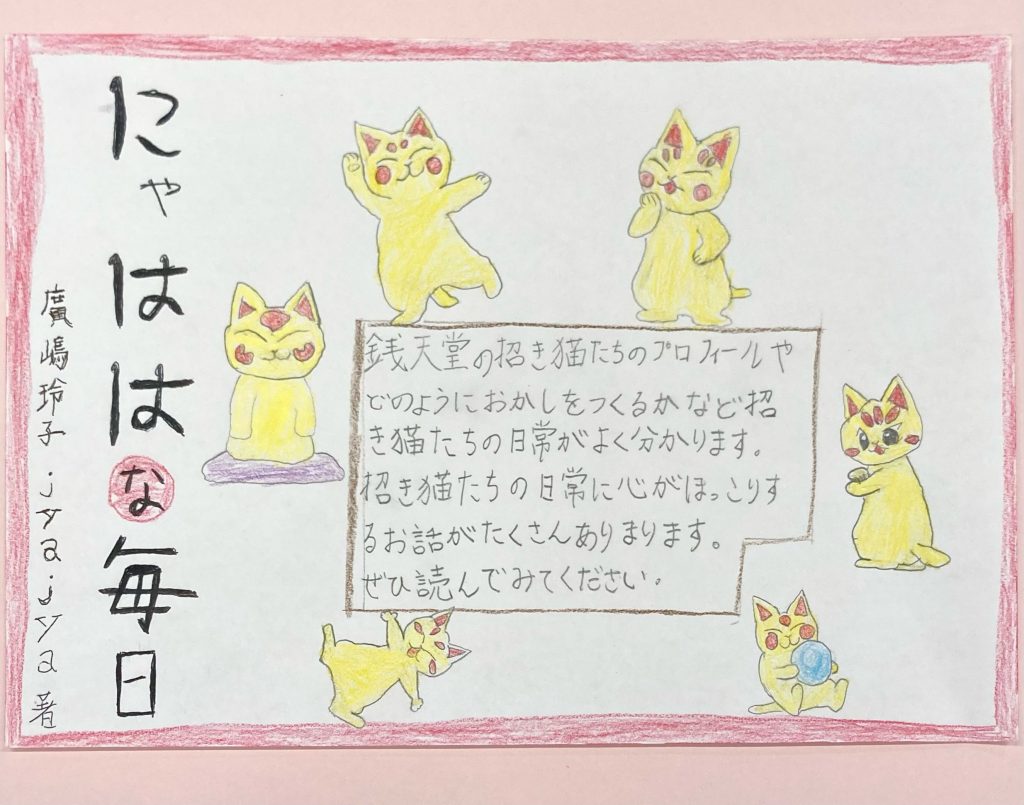 にゃははな毎日
廣嶋玲子 jyajya 著
銭天堂の招き猫たちのプロフィールや
どのようにおかしをつくるかなど招
き猫たちの日常がよく分かります。
招き猫たちの日常に心がほっこりす
るお話がたくさんありまります。
ぜひ読んでみてください。